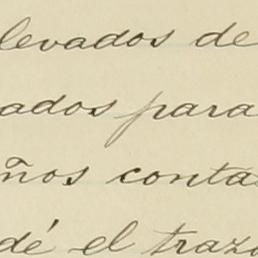 levados de
ados para
ños conta
dé el trazo